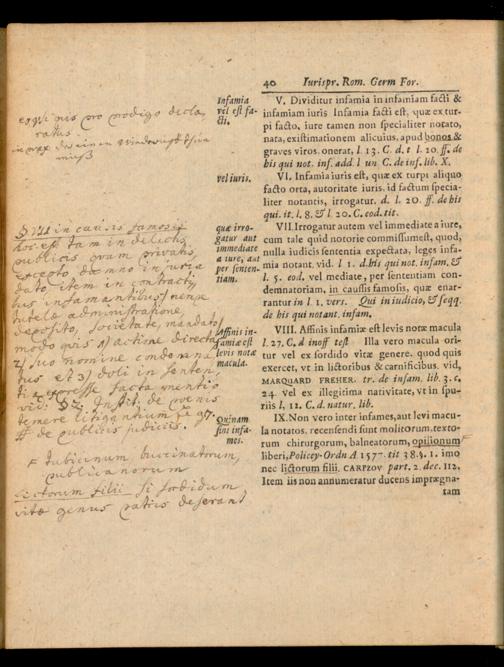 40 Iurispr. Rom. Germ For.
Infamia
vel est fa-
cti.
V. Dividitur infamia in infamiam facti &
infamiam iuris Infamia facti est, quæ ex tur-
pi facto, iure tamen non specialiter notato,
nata, existimationem alicuius, apud bonos &
graves viros, onerat, l. 13. C. d. t l. 20. ff. de
his qui not. inf. add. l un C. de inf. lib. X.
vel iuris.
VI. Infamia iuris est, quæ ex turpi aliquo
facto orta, autoritate iuris, id factum specia-
liter notantis, irrogatur. d. l. 20. ff. de his
qui. it. l. 8. & l 20. C. eod. tit.
quæ irro-
gatur aut
immediate
a iure, aut
per senten-
tiam.
VII. Irrogatur autem vel immediate a iure,
cum tale quid notorie commissum est, quod,
nulla iudicis sententia expectata, leges infa-
mia notant. vid. l 1. d. his qui not. infam. &
l. 5. eod. vel mediate, per sententiam con-
demnatoriam, in caussis famosis, quæ enar-
rantur in l 1. vers. Qui in iudicio, & seqq.
de his qui notant. infam.
Affinis in-
famiæ est
levis notæ
macula.
VIII. Affinis infamiæ est levis notæ macula
l. 27. C. d inoff test Illa vero macula ori-
tur vel ex sordido vitæ genere, quod quis
exercet, vt in lictoribus & carnificibus. vid,
MARQUARD FREHER. tr. de infam. lib. 3. c.
24. vel ex illegitima nativitate, vt in spu-
riis l. 12. C. d. natur. lib.
Quinam
sint infa-
mes.
IX. Non vero inter infames, aut levi macu-
la notatos, recensendi sunt molitorum, texto-
rum chirurgorum, balneatorum, opilionum
liberi, Policey-Ordn A 1577. tit 38. §. 1. imo
nec lictorum filii, CARPZOV part. 2. dec. 112.
Item iis non annumeratur ducens imprægna-
tam
pro prodigo decla,
ratus
§ VII in caussis famosis
hoc est tam in delictis
publicis quam privatis
excepto damno in iuria
dato item in contracti,
bus infamantibus nempe
tutelæ administratione,
deposito, societate, mandato
modo quis 1) actione directa
2) suo nomine condemna
tus et 3) doli in senten,
tia expresse facta mentio
vid: § 2. Instit. de pœnis
temere litigantium
ff de publicis judiciis.
F tubicinum, buccinatorum,
publicanorum
Lictorum filii si sordidum
vitæ genus patris deserant